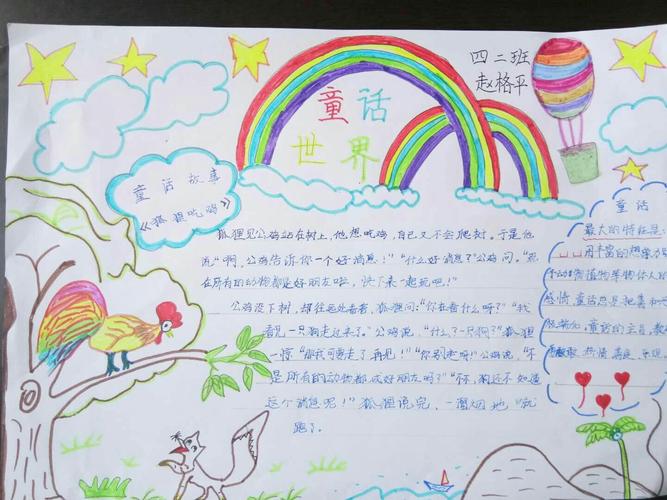 四二班
赵格平
童话
世界
童话故事
《狐狸吃鸡》
狐狸见公鸡站在树上,他想吃鸡,自己又不会爬树。于是他
说“啊,公鸡告诉你一个好消息!”“什么好消息?”公鸡问。“现
在所有的动物都是好朋友啦,快下来一起玩吧!”
公鸡没下树,却往远处看看,狐狸问:“你在看什么呀?”“我
看见一只狗走过来了。”公鸡说。“什么?一只狗?”狐狸
一惊“那我可要走了再见!”“你别走呀!”公鸡说,“不
是所有的动物都成好朋友吗?”“不,狗还不知道
这个消息呢!”狐狸说完,一溜烟地“就
跑了。
童话
最大的特征是:
用丰富的想象力
动植物等物体人的
感情,童话总是把真和
童话的主旨,教
热情 善良 乐观